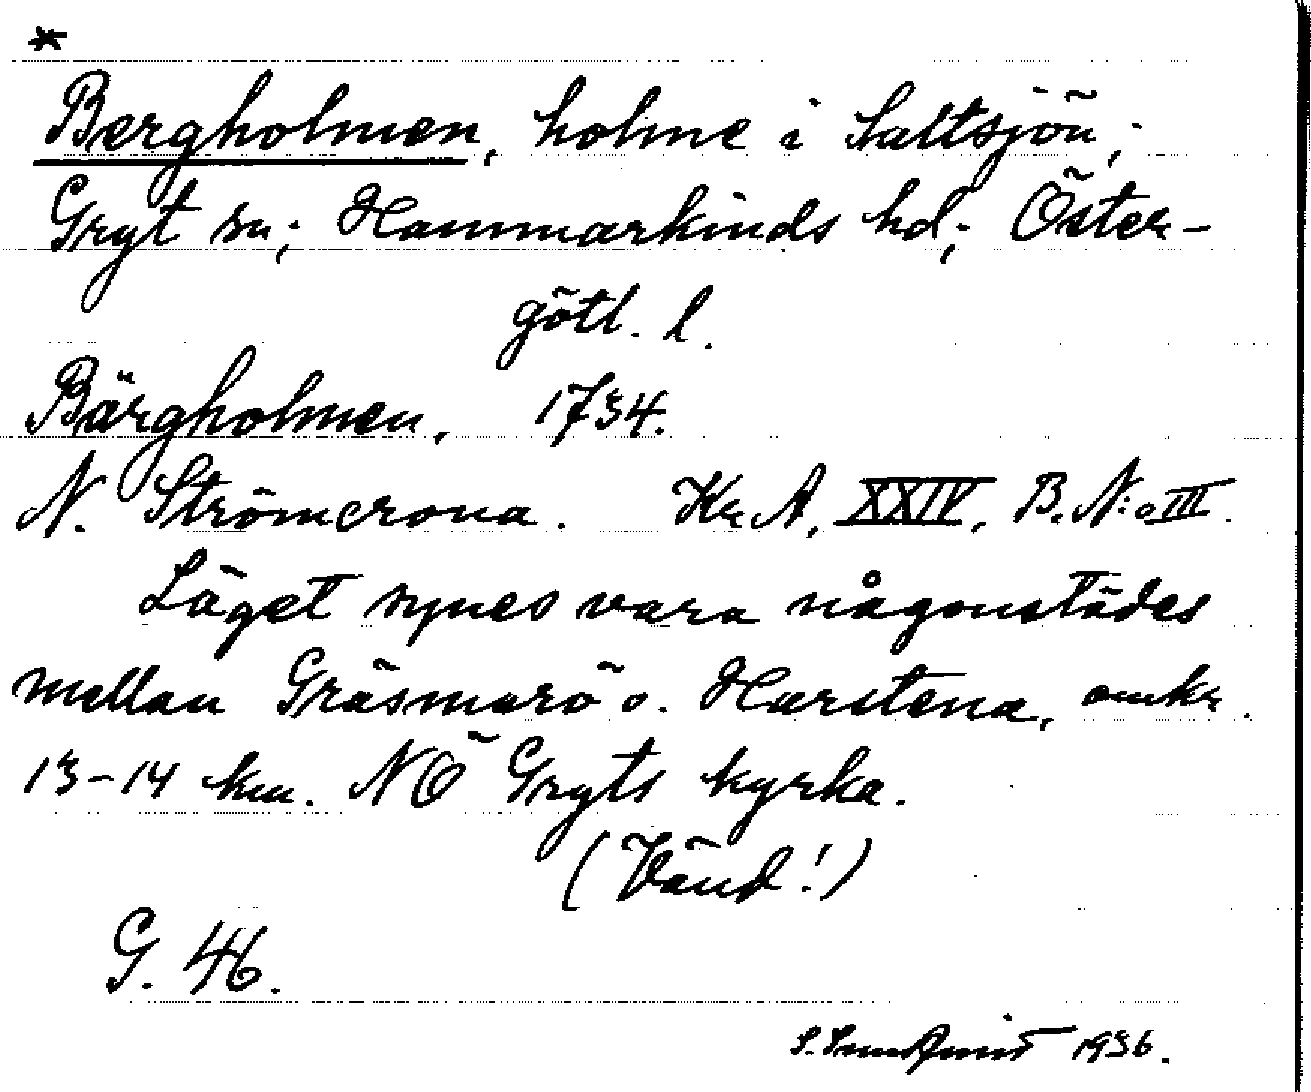 *
Bergholmen, holme i Saltsjön;
Gryt sn; Hammarkinds hd; Öster-
götl. l.
Bärgholmen, 1734.
N. Strömcrona. Kr. A, XXIV, B. N:o III.
Läget synes vara någonstädes
mellan Gräsmarö o. Harstena, omkr.
13-14 km. NÖ Gryts kyrka.
(Vänd!)
G. 46.
S. 1936.